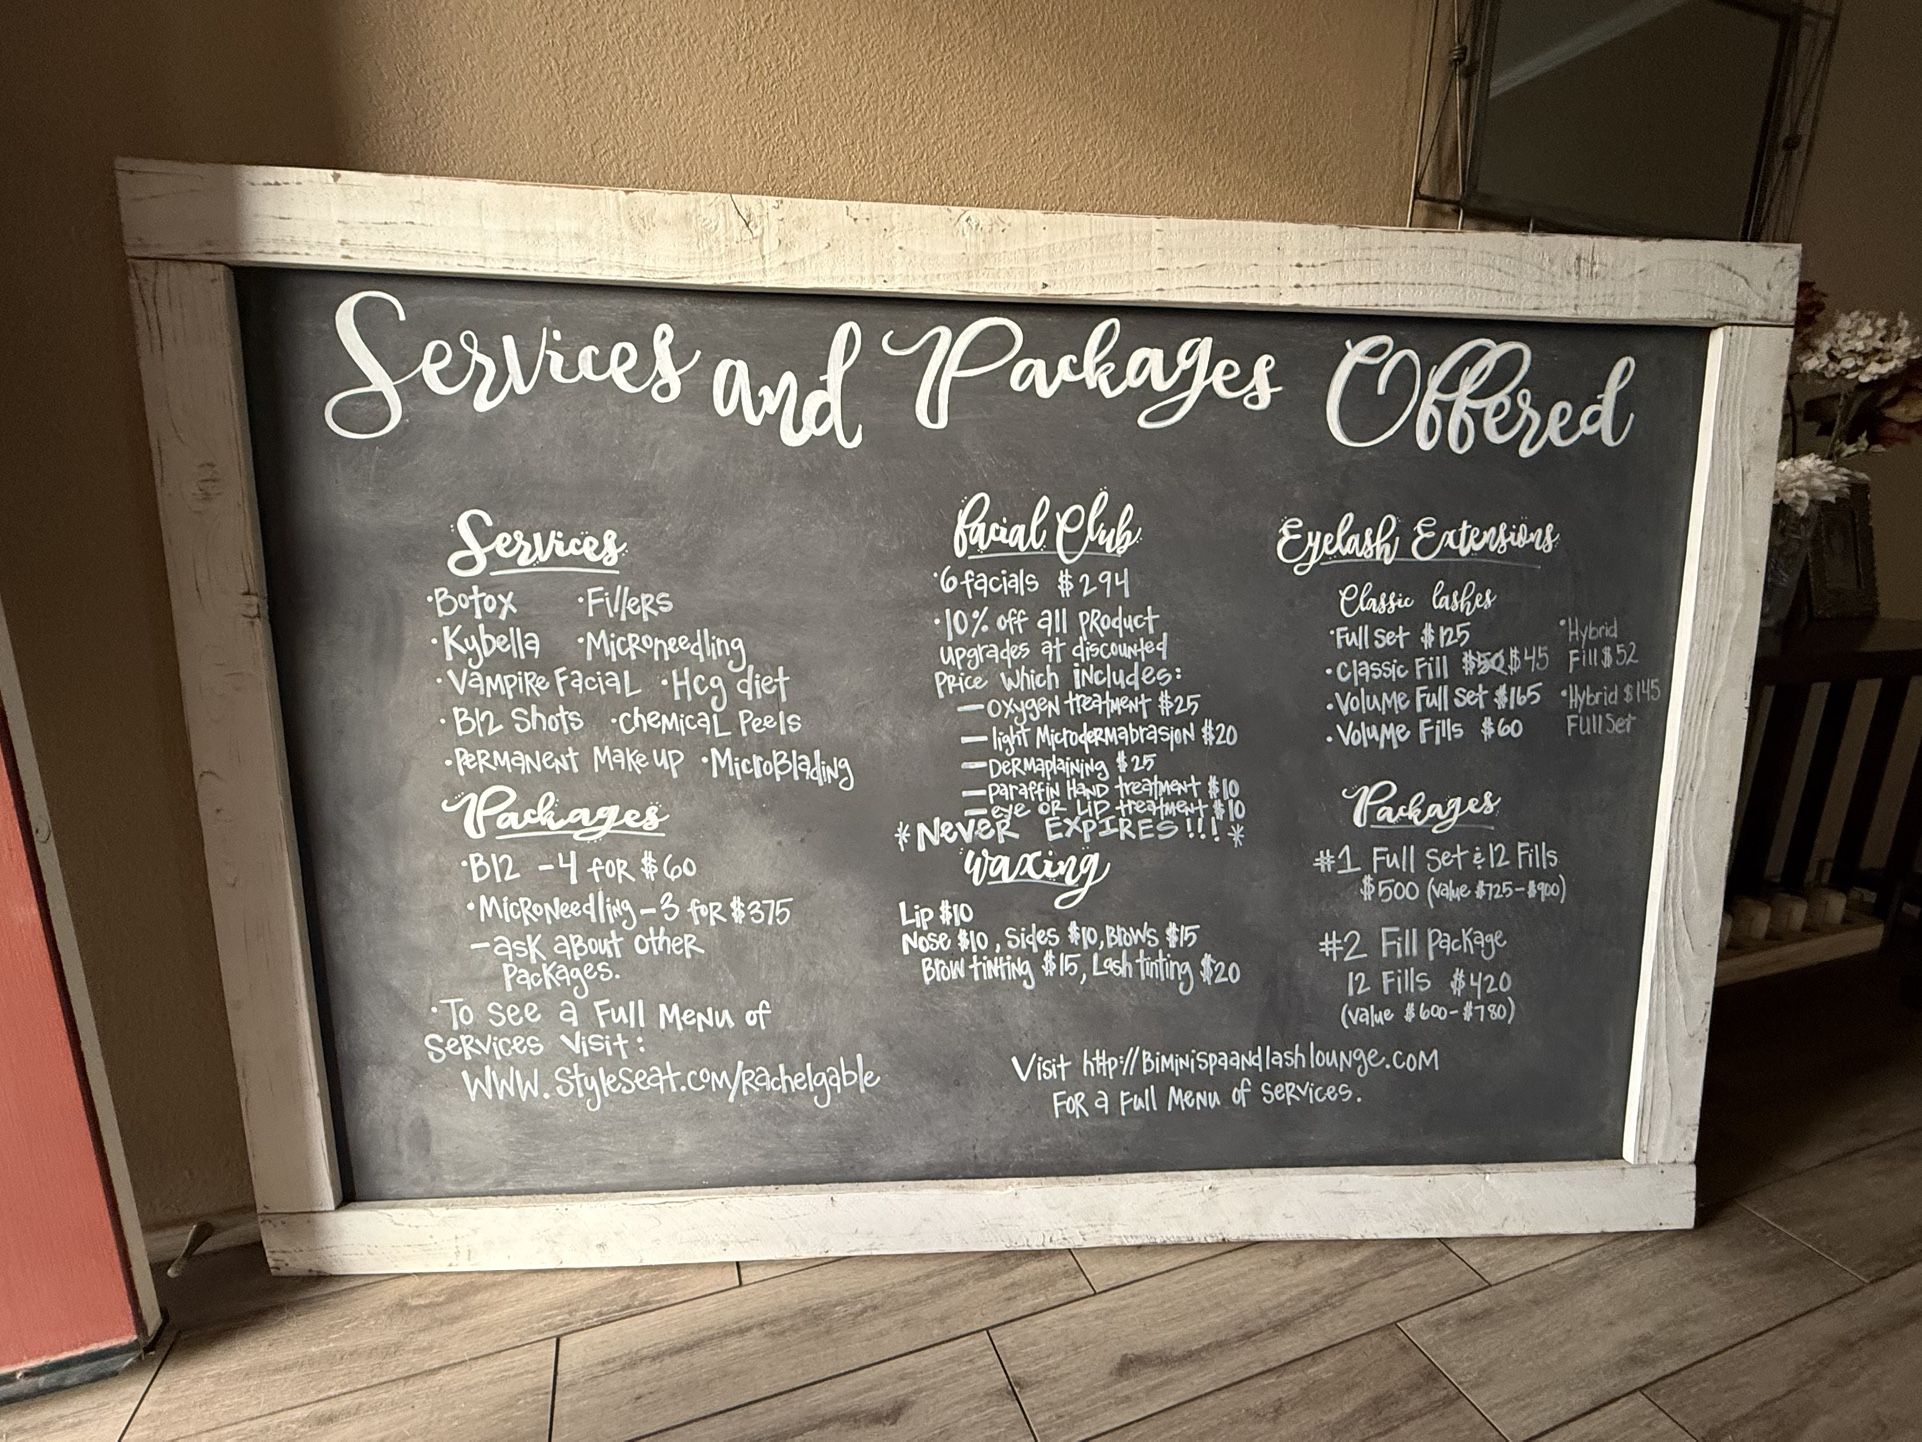 Services and Packages Offered
Services
•Botox •Fillers
•Kybella •Microneedling
•Vampire Facial •Hcg diet
•B12 Shots •Chemical Peels
•Permanent Make up •MicroBlading
Packages
•B12 -4 for $60
•Microneedling-3 for $375
-ask about other
packages.
•To see a Full Menu of
Services Visit:
WWW.Styleseat.com/rachelgable
Facial Club
•6 facials $294
•10% off all product
upgrades at discounted
price which includes:
-oxygen treatment $25
-light Microdermabrasion $20
-Dermaplaining $25
-paraffin Hand treatment $10
-eye or Lip treatment $10
*Never EXPIRES!!!*
Waxing
Lip $10
Nose $10, Sides $10, Brows $15
Brow tinting $15, Lash tinting $20
Eyelash Extensions
Classic lashes
•Full Set $125
•Classic Fill $50 $45
•Volume Full Set $165
•Volume Fills $60
•Hybrid
Fill $52
•Hybrid $145
Full Set
Packages
#1 Full Set & 12 Fills
$500 (value $725-$900)
#2 Fill Package
12 Fills $420
(value $600-$780)
Visit http://Biminispaandlashlounge.com
For a Full Menu of Services.